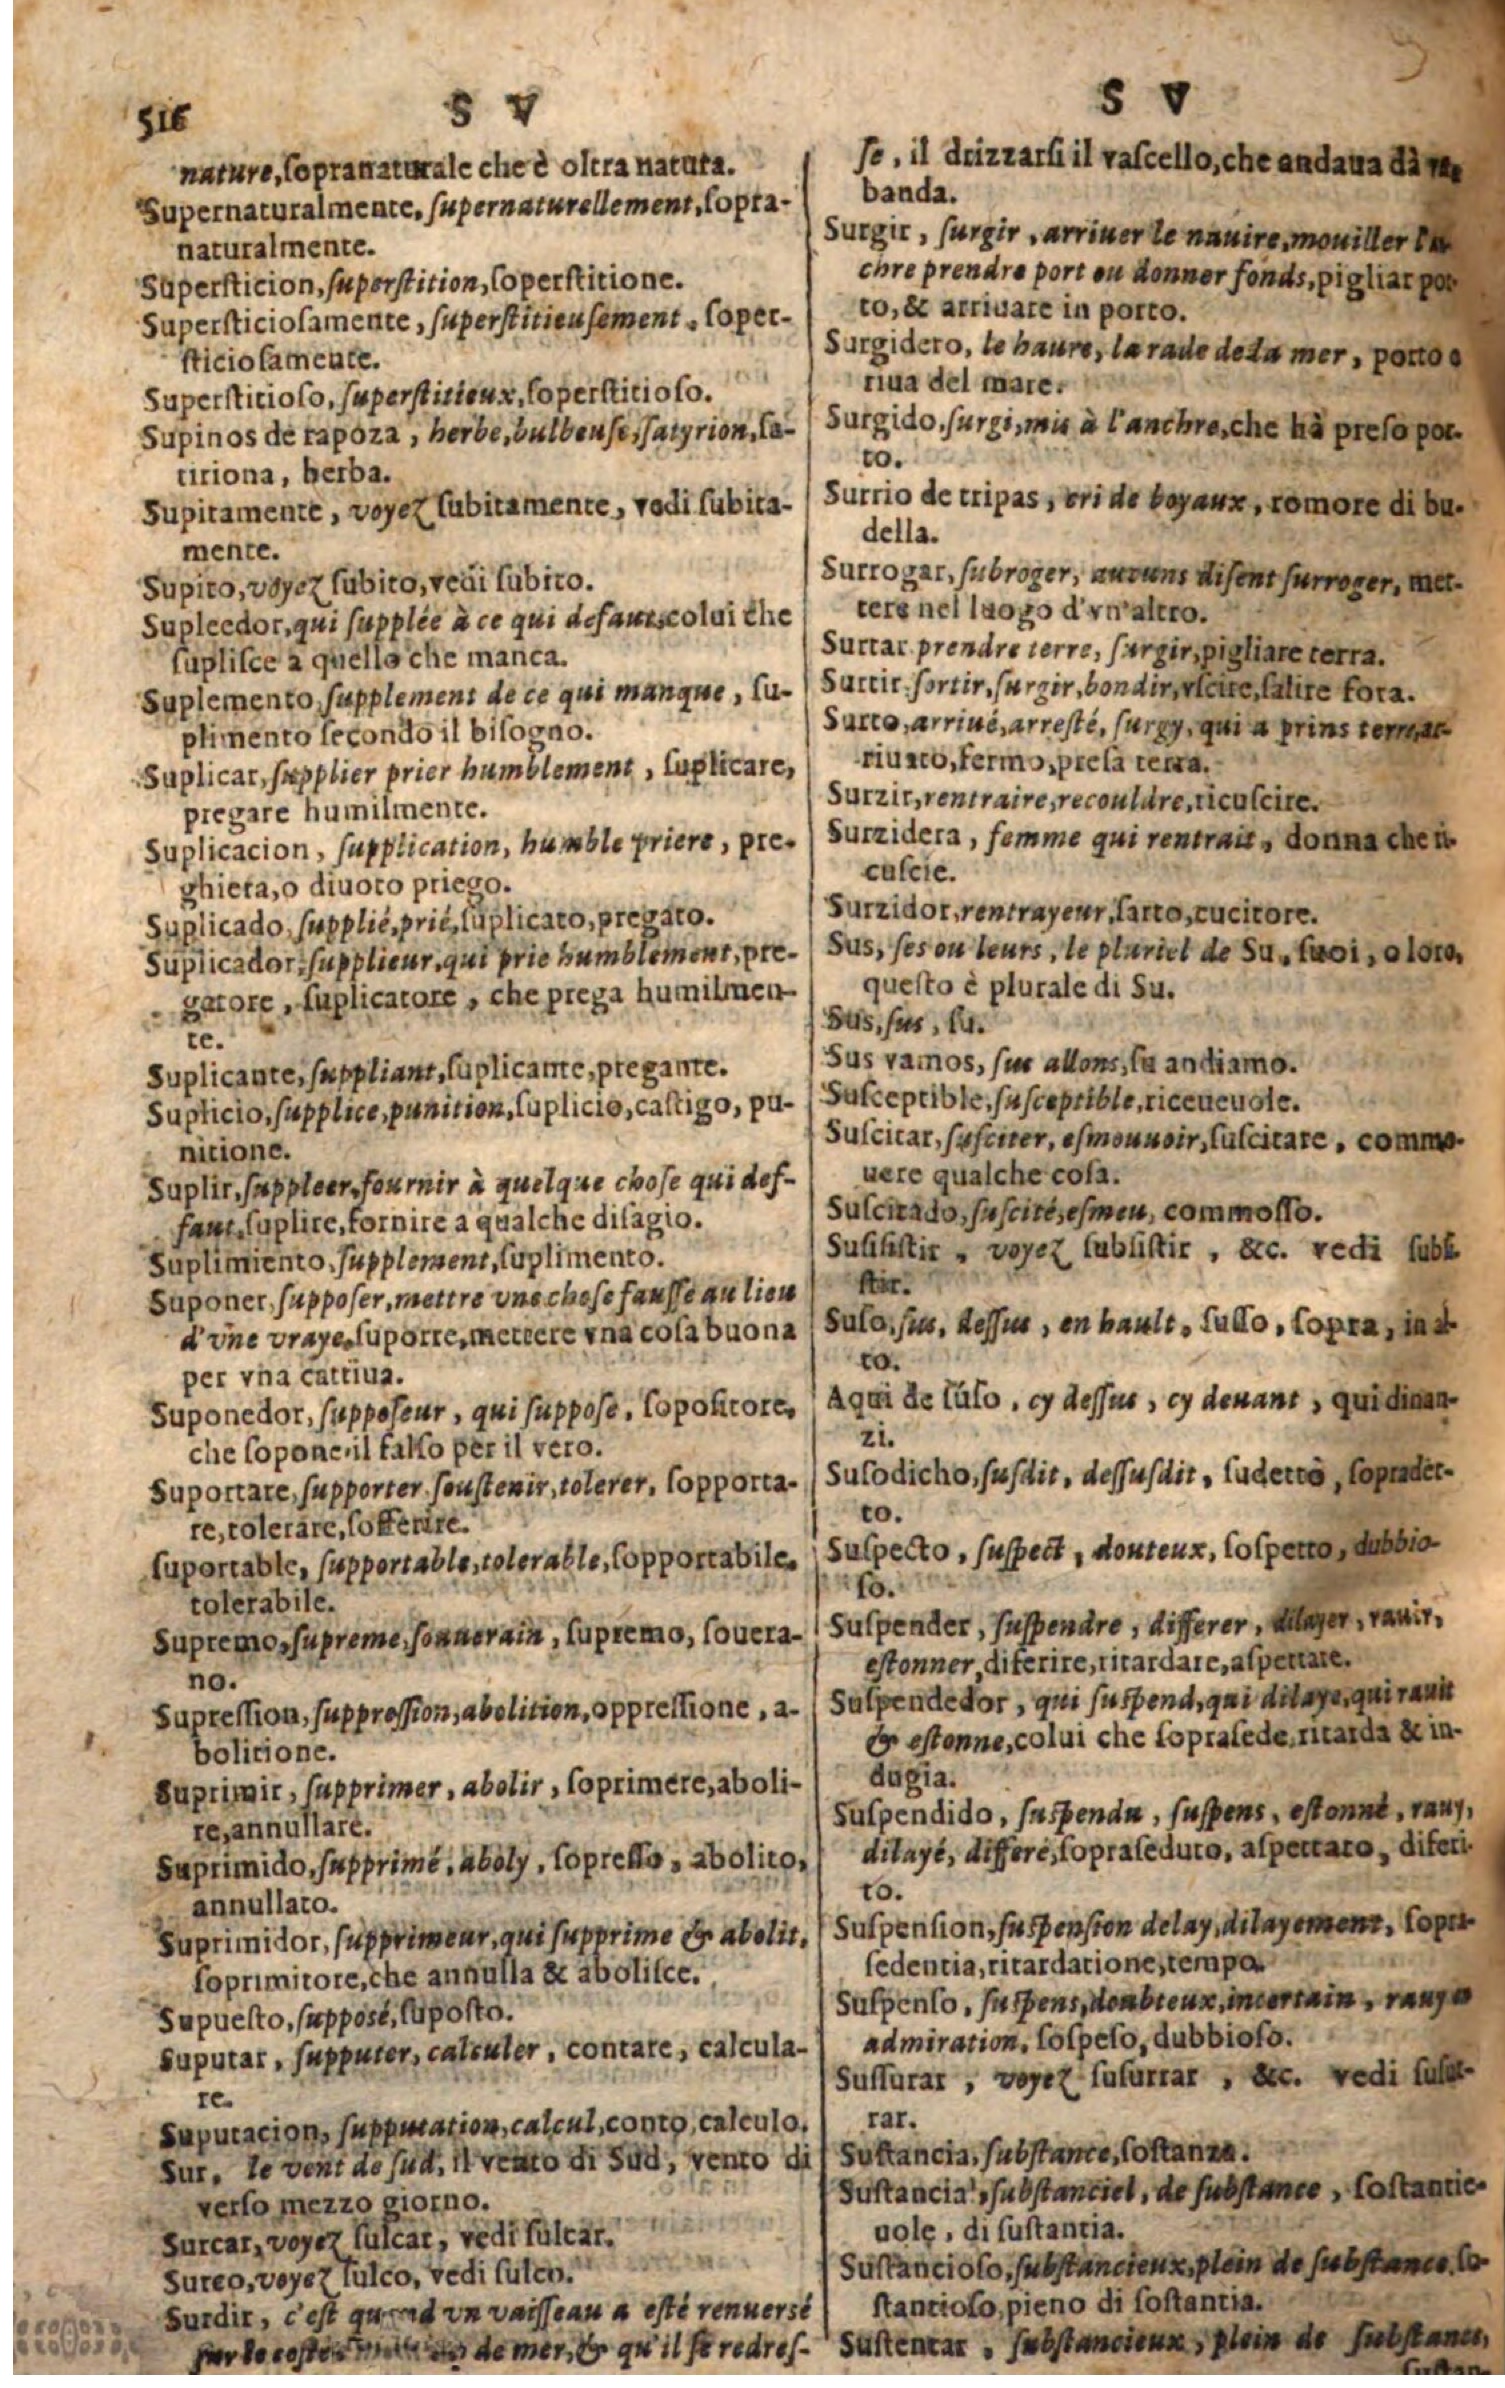 516 S V
nature, sopranaturale che è oltra natura.
Supernaturalmente, supernaturellement, sopra-
naturalmente.
Supersticion, superstition, soperstitione.
Supersticiosamente, superstitieusement, soper-
sticiosamente.
Superstitioso, superstitieux, soperstitioso.
Supinos de rapoza, herbe, bulbeuse, satyrion, sa-
tiriona, herba.
Supitamente, voyez subitamente, vedi subita-
mente.
Supito, voyez subito, vedi subito.
Supleedor, qui supplée à ce qui defaut, colui che
suplisce a quello che manca.
Suplemento, supplement de ce qui manque, su-
plimento secondo il bisogno.
Suplicar, supplier prier humblement, suplicare,
pregare humilmente.
Suplicacion, supplication, humble priere, pre-
ghiera, o divoto priego.
Suplicado, supplié, prié, suplicato, pregato.
Suplicador, supplieur, qui prie humblement, pre-
gatore, suplicatore, che prega humilmen-
te.
Suplicante, suppliant, suplicante, pregante.
Suplicio, supplice, punition, suplicio, castigo, pu-
nitione.
Suplir, suppleer, fournir à quelque chose qui def-
faut, suplire, fornire a qualche disagio.
Suplimiento, supplement, suplimento.
Suponer, supposer, mettre vne chose fausse au lieu
d'vne vraye, suporre, mettere vna cosa buona
per vna cattiua.
Suponedor, supposeur, qui suppose, sopositore,
che sopone il falso per il vero.
Suportare, supporter soustenir, tolerer, sopporta-
re, tolerare, sofferire.
suportable, supportable, tolerable, sopportabile,
tolerabile.
Supremo, supreme, souuerain, supremo, souera-
no.
Supression, suppression, abolition, oppressione, a-
bolitione.
Suprimir, supprimer, abolir, soprimere, aboli-
re, annullare.
Suprimido, supprimé, aboly, sopresso, abolito,
annullato.
Suprimidor, supprimeur, qui supprime & abolit,
soprimitore, che annulla & abolisce.
Supuesto, supposé, suposto.
Suputar, supputer, calculer, contare, calcula-
re.
Suputacion, supputation, calcul, conto, calculo.
Sur, le vent de sud, il vento di Sud, vento di
verso mezzo giorno.
Surcar, voyez sulcar, vedi sulcar.
Surco, voyez sulco, vedi sulco.
Surdir, c'est quand vn vaisseau a esté renuersé
sur le coste de mer, & qu'il se redres-
S V
se, il drizzarsi il vascello, che andaua dà
banda.
Surgir, surgir, arriuer le nauire, mouiller l'an-
chre prendre port ou donner fonds, pigliar por-
to, & arriuare in porto.
Surgidero, le haure, la rade de la mer, porto o
riua del mare.
Surgido, surgi, mis à l'anchre, che hà preso por-
to.
Surrio de tripas, cri de boyaux, romore di bu-
della.
Surrogar, subroger, aucuns disent surroger, met-
tere nel luogo d'vn'altro.
Surtar prendre terre, surgir, pigliare terra.
Surtir, sortir, surgir, bondir, vscire, salire fora.
Surto, arriué, arresté, surgy, qui a prins terre, ar-
riuato, fermo, presa terra.
Surzir, rentraire, recouldre, ricuscire.
Surzidera, femme qui rentrait, donna che ri-
cuscie.
Surzidor, rentrayeur, sarto, cucitore.
Sus, ses ou leurs, le pluriel de Su, suoi, o loro,
questo è plurale di Su.
Sus, sus, su.
Sus vamos, sus allons, su andiamo.
Susceptible, susceptible, riceueuole.
Suscitar, susciter, esmouuoir, suscitare, commo-
uere qualche cosa.
Suscitado, suscité, esmeu, commosso.
Susistir, voyez subsistir, &c. vedi subsi-
stir.
Suso, sus, dessus, en hault, susso, sopra, in al-
to.
Aqui de suso, cy dessus, cy deuant, qui dinan-
zi.
Susodicho, susdit, dessusdit, sudetto, sopradet-
to.
Suspecto, suspect, douteux, sospetto, dubbio-
so.
Suspender, suspendre, differer, dilayer, rauir,
estonner, diferire, ritardare, aspettare.
Suspendedor, qui suspend, qui dilaye, qui rauit
& estonne, colui che soprasede, ritarda & in-
dugia.
Suspendido, suspendu, suspens, estonné, rauy,
dilayé, differé, sopraseduto, aspettato, diferi-
to.
Suspension, suspension delay, dilayement, sopra-
sedentia, ritardatione, tempo.
Suspenso, suspens, doubteux, incertain, rauy en
admiration, sospeso, dubbioso.
Sussurar, voyez susurrar, &c. vedi susur-
rar.
Sustancia, substance, sostanza.
Sustancial, substanciel, de substance, sostantie-
uole, di sustantia.
Sustancioso, substancieux, plein de substance, so-
stantioso, pieno di sostantia.
Sustentar, substancieux, plein de substance,
sustan-